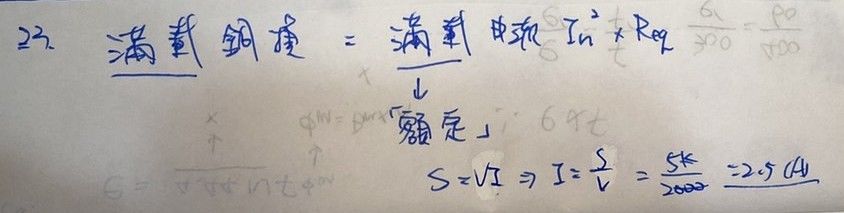 23. 滿載銅損 = 滿載電流 In² × Req
↓
「額定」
S = VI ⇒ I = S/V = 5K/2000 = 2.5 (A)